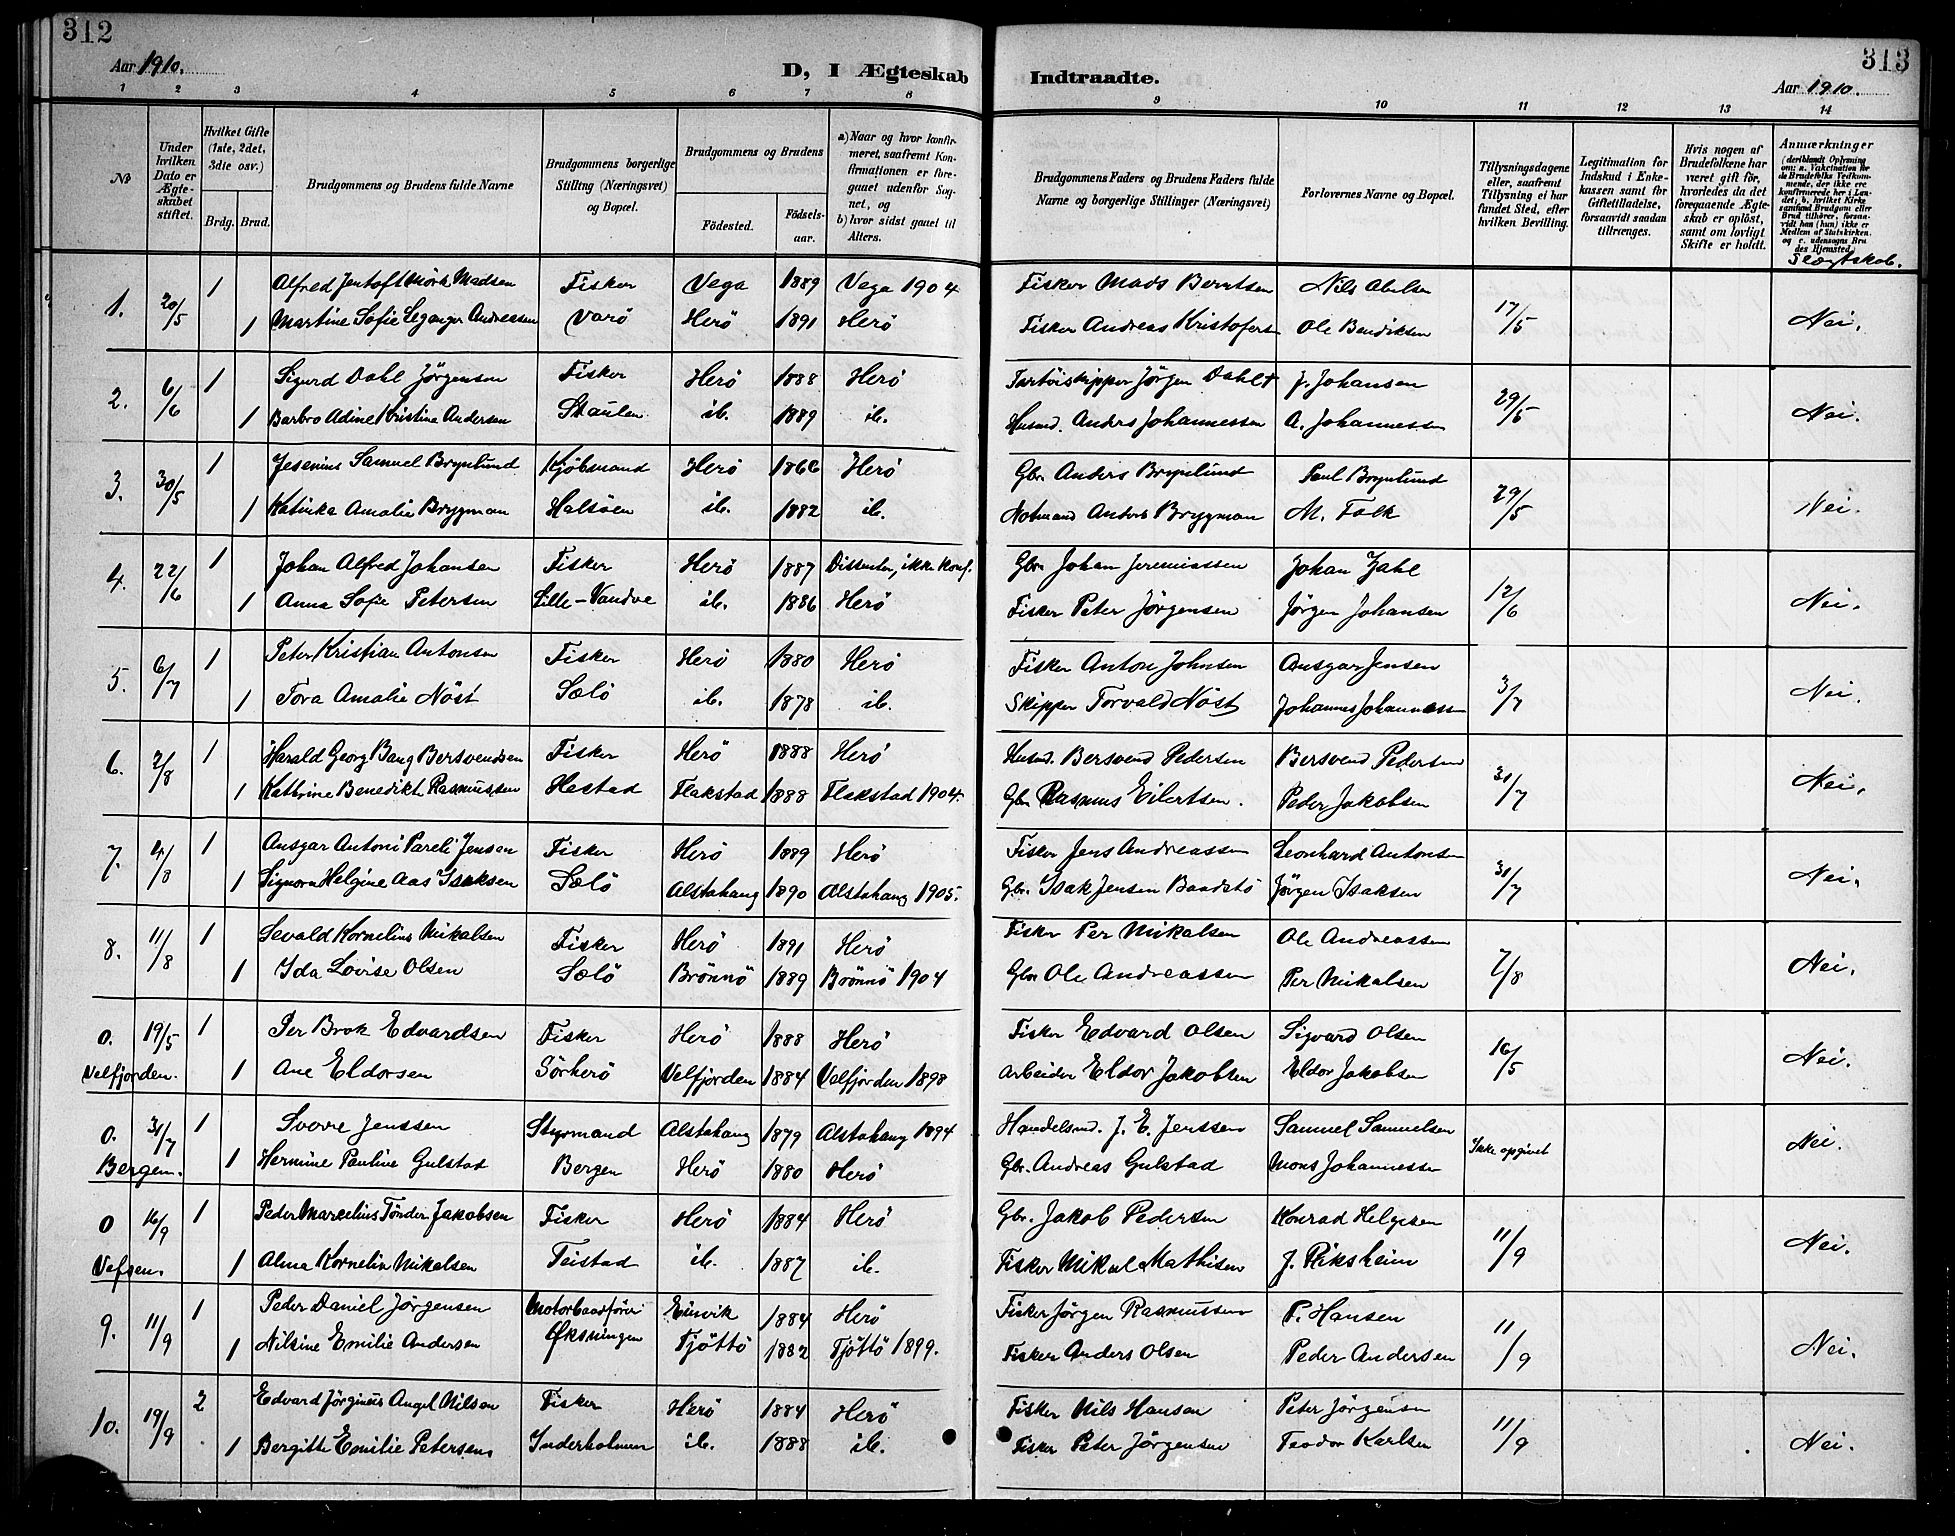 312
313
Aar 1910.
D, I Ægteskab Indtraadte.
Aar 1910.
1 2 3 4 5 6 7 8 9 10 11 12 13 14
No
Under hvilken Dato er Ægteskabet stiftet.
Hvilket Gifte (1ste, 2det, 3die osv.)
Brdg. Brud.
Brudgommens og Brudens fulde Navne
Brudgommens borgerlige Stilling (Næringsvei) og Bopæl.
Brudgommens og Brudens
Födested. Födselsaar.
a) Naar og hvor konfirmeret, saafremt Konfirmationen er foregaaet udenfor Sognet, og
b) hvor sidst gaaet til Alters.
Brudgommens Faders og Brudens Faders fulde Navne og borgerlige Stillinger (Næringsvei)
Forlovernes Navne og Bopæl.
Tillysningsdagene eller, saafremt Tillysning ei har fundet Sted, efter hvilken Bevilling.
Legitimation for Indskud i Enkekassen samt för Giftetilladelse, forsaavidt saadan tiltrænges.
Hvis nogen af Brudefolkene har været gift för, hvorledes da det foregaaende Ægteskab er oplöst, samt om lovligt Skifte er holdt.
Anmærkninger
(deriblandt Oplysning om: a. Vakcination for de Brudefolks Vedkommende, der ikke ere konfirmerede her i Landet; b. hvilket Kirkesamfund Brudgom eller Brud tilhörer, forsaavidt han (hun) ikke er Medlem af Statskirken. og c. udensogns Brudes Hjemsted.)
Slægtskab.
1. 20/5 1 Alfred Jentoft Mörk Madsen Fisker Vega 1889 Vega 1904 Fisker Mads Berntsen Nils Abelsen 17/5 Nei.
1 Martine Sofie Leganger Andreassen Varö Herö 1891 Herö Fisker Andreas Kristofers Ole Bendiksen
2. 6/6 1 Sigurd Dahl Jörgensen Fisker Herö 1888 Herö Jörgen Dahl † J. Johansen 29/5 Nei.
1 Barbro Adine Kristine Andersen Staulen ib. 1889 ib. Husmd. Anders Johannessen A. Johannessen
3. 30/5 1 Jesenius Samuel Brynlund Kjöbmand Herö 1866 Herö Gbr. Anders Brynlund Paul Brynlund 29/5 Nei.
1 Katinka Amalie Brygman ib. 1882 ib. Notmand Anders Brygman M. Falk
4. 22/6 1 Johan Alfred Johansen Fisker Herö 1887 Dissenter, ikke konf. Gbr. Johan Jeremiassen Johan Zahl 12/6 Nei.
1 Anna Sofie Petersen Lille-Vandve ib. 1886 Herö Fisker Peter Jörgensen Jörgen Johansen
5. 6/7 1 Peter Kristian Antonsen Fisker Herö 1880 Herö Fisker Anton Johnsen Ansgar Jensen 3/7 Nei.
1 Tora Amalie Nöst Sælö ib. 1878 ib. Skipper Torvald Nöst Johannes Johannessen
6. 2/8 1 Harald Georg Bang Bersvendsen Fisker Herö 1888 Herö Husmd. Bersvend Pedersen Bersvend Pedersen 31/7 Nei.
1 Kathrine Benedikt Rasmussen Hestad Flakstad 1888 Flakstad 1904. Gbr Rasmus Eilertsen. Peder Jakobsen
7. 4/8 1 Ansgar Antoni Pareli Jensen Fisker Herö 1889 Herö Fisker Jens Andreassen Leonhard Antonsen 31/7 Nei.
1 Signora Helgine Aas Isaksen Sælö Alstahaug 1890 Alstahaug 1905. Gbr. Isak Jensen Jörgen Isaksen
8. 11/8 1 Sevald Kornelius Mikalsen Fisker Herö 1891 Herö Fisker Per Mikalsen Ole Andreassen 7/8 Nei.
1 Ida Lovise Olsen Sælö Brönnö 1889 Brönnö 1904 Gbr Ole Andreassen Per Mikalsen
0. 19/5 1 Per Brok Edvardsen Fisker Herö 1888 Herö Fisker Edvard Olsen Sigvard Olsen 16/5 Nei.
Velfjorden. 1 Ane Eldorsen Sörherö Velfjorden 1884 Velfjorden 1898 Arbeider Eldor Jakobsen Eldor Jakobsen
0. 31/7 1 Sverre Jenssen Styrmand Alstahaug 1879 Alstahaug 1894 Handelsmd. J. E. Jenssen Samuel Samuelsen Ikke opgivet Nei.
Bergen. 1 Hermine Pauline Gulstad Bergen Herö 1880 Herö Gbr. Andreas Gulstad Mons Johannessen
0 16/9 1 Peder Marcelius Tönder Jakobsen Fisker Herö 1884 Herö Gbr. Jakob Pedersen Konrad Helgesen 11/9 Nei.
Vefsen. 1 Alma Kornelia Mikalsen Teistad ib. 1887 ib. Fisker Mikal Mathisen J. Riksheim
9. 11/9 1 Peder Daniel Jörgensen Motorbaadförer Einvik 1884 Herö Fisker Jörgen Rasmussen P. Hansen 11/9 Nei.
1 Nilsine Emilie Andersen Öksningen Tjöttö 1882 Tjöttö 1899. Fisker Anders Olsen Peder Andersen
10. 19/9 2 Edvard Jörginus Angel Nilsen Fisker Herö 1884 Herö Fisker Nils Hansen Peter Jörgensen 11/9 Nei.
1 Bergitte Emilie Petersen Inderholmen ib. 1888 ib. Fisker Peter Jörgensen Teodor Karlsen